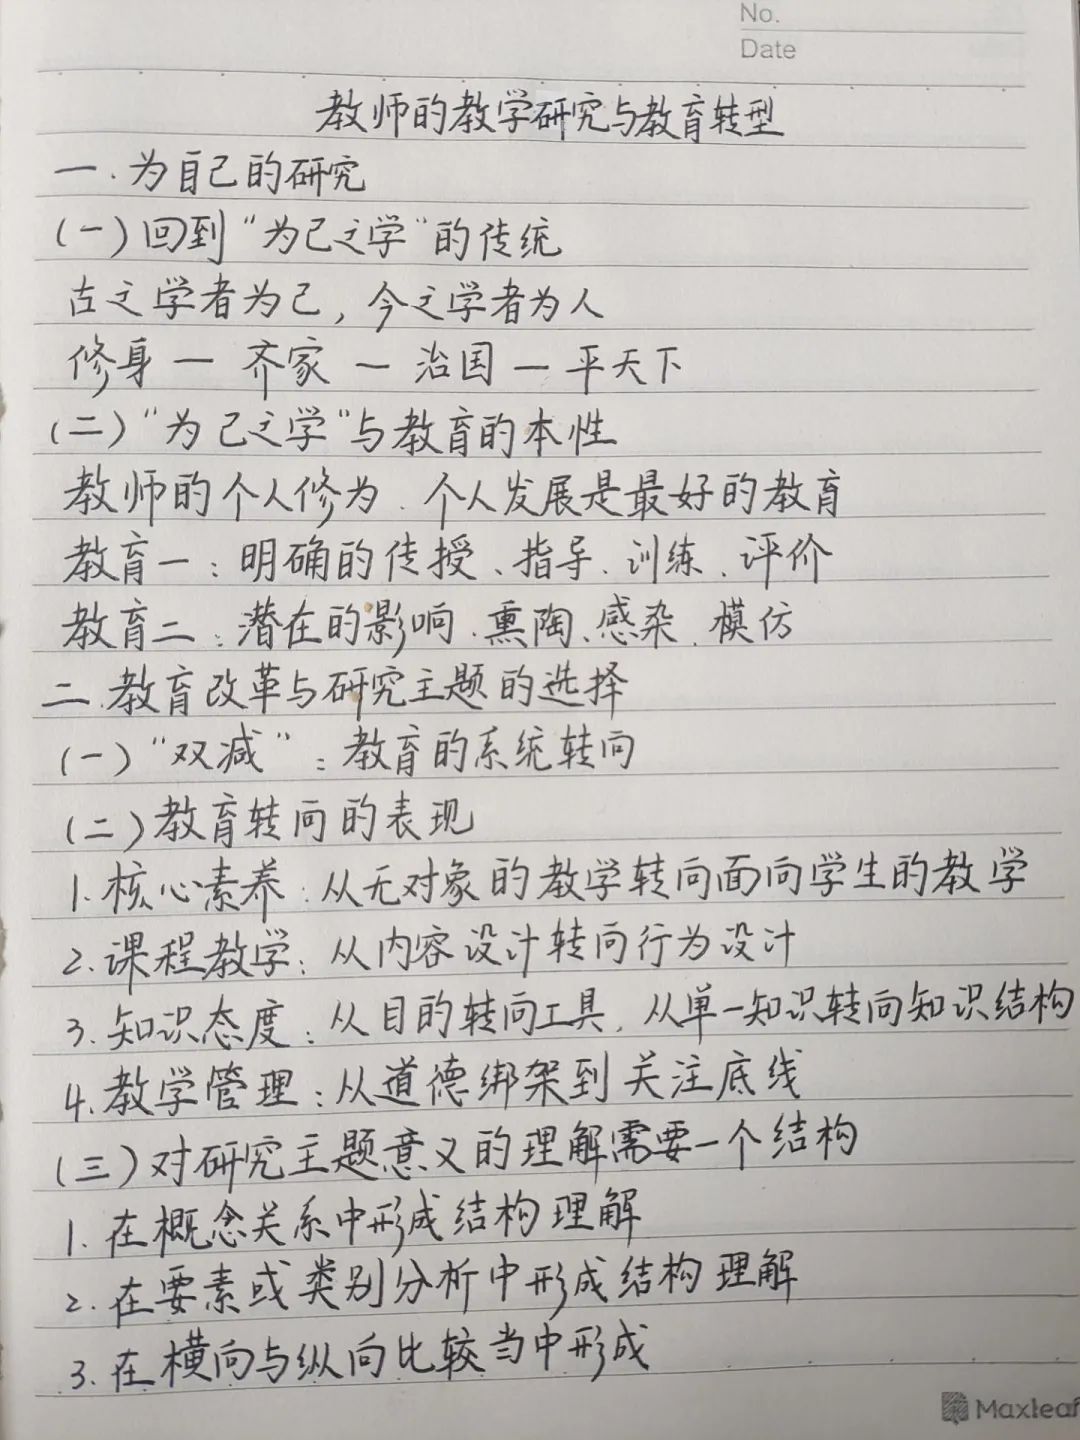 No.
Date
教师的教学研究与教育转型
一.为自己的研究
(一)回到"为己之学"的传统
古之学者为己,今之学者为人
修身一齐家一治国一平天下
(二)"为己之学"与教育的本性
教师的个人修为.个人发展是最好的教育
教育一:明确的传授、指导、训练、评价
教育二:潜在的影响、熏陶、感染、模仿
二.教育改革与研究主题的选择
(一)"双减":教育的系统转向
(二)教育转向的表现
1.核心素养:从无对象的教学转向面向学生的教学
2.课程教学:从内容设计转向行为设计
3.知识态度:从目的转向工具,从单一知识转向知识结构
4.教学管理:从道德绑架到关注底线
(三)对研究主题意义的理解需要一个结构
1.在概念关系中形成结构理解
2.在要素或类别分析中形成结构理解
3.在横向与纵向比较当中形成
Maxleaf